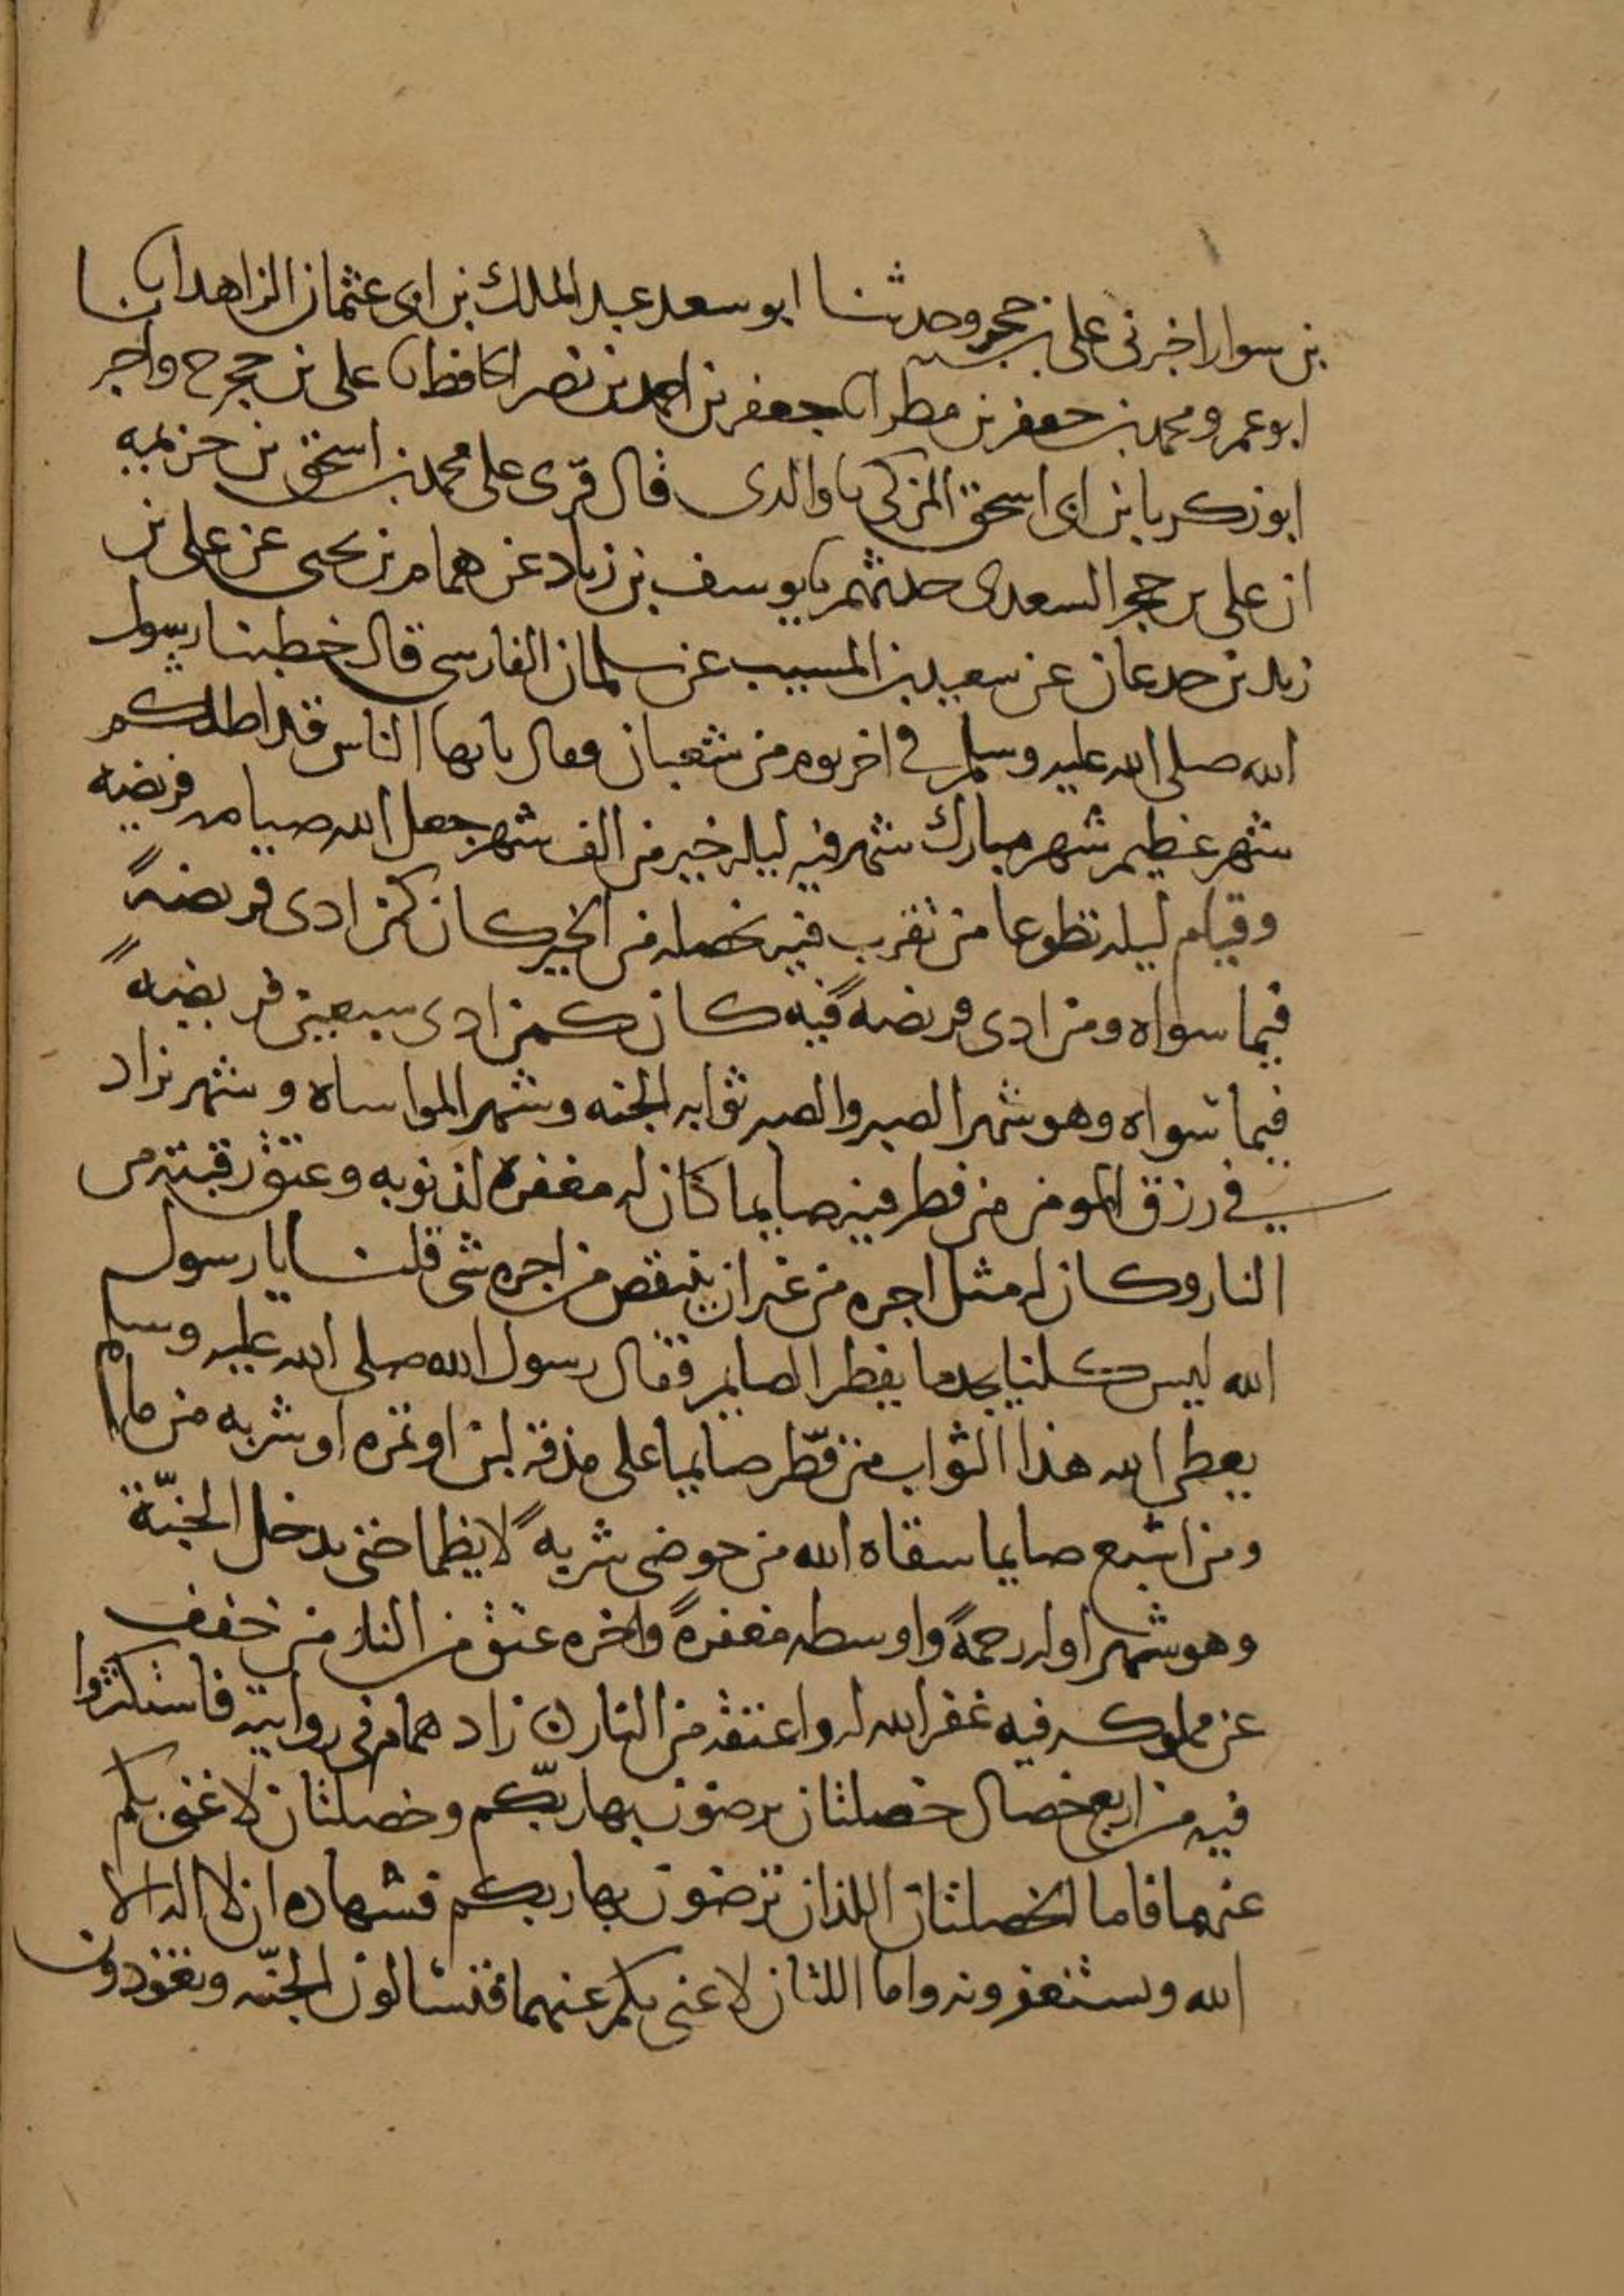 بن سوار اخبرنى على بن حجر وحدثنا ابو سعد عبد الملك بن ابى عثمان الزاهد انا
ابو عمرو محمد بن جعفر بن مطر انا جعفر بن احمد بن نصر الحافظ نا على بن حجر ح واخبر
ابو زكريا بن ابى اسحق المزكى نا والدى قال قرى على محمد بن اسحق بن خزيمه
ان على بن حجر السعدى حدثهم نا يوسف بن زياد عن همام بن يحيى عن على بن
زيد بن جدعان عن سعيد بن المسيب عن سلمان الفارسى قال خطبنا رسول
الله صلى الله عليه وسلم فى اخر يوم من شعبان فقال يايها الناس قد اظلكم
شهر عظيم شهر مبارك شهر فيه ليله خير من الف شهر جعل الله صيامه فريضه
وقيام ليله تطوعا من تقرب فيه بخصله من الخير كان كمن ادى فريضهً
فيما سواه ومن ادى فريضهً فيه كان كمن ادى سبعين فريضهً
فيما سواه وهو شهر الصبر والصبر ثوابه الجنه وشهر المواساه وشهر يزاد
فى رزق المومن من فطر فيه صايما كان له مغفره لذنوبه وعتق رقبته من
النار وكان له مثل اجره من غير ان ينتقص من اجره شى قلنا يا رسول
الله ليس كلنا يجد ما يفطر الصايم فقال رسول الله صلى الله عليه وسلم
يعطى الله هذا الثواب من فطّر صايما على مذقه لبن او تمره او شربه من ما
ومن اشبع صايما سقاه الله من حوضى شربهً لا يظما حتى يدخل الجنّة
وهو شهر اوله رحمهً واوسطه مغفرهً واخره عتق من النار من خفف
عن مملوكه فيه غفر الله له واعتقه من النار ن زاد همام فى روايته فاستكثروا
فيه من اربع خصال خصلتان ترضون بها ربّكم وخصلتان لا غنى بكم
عنهما فاما الخصلتان اللذان ترضون بها ربكم فشهاده ان لا اله الا
الله وتستغفرونه واما اللتان لا غنى بكم عنهما فتسالون الجنّه وتعوذون